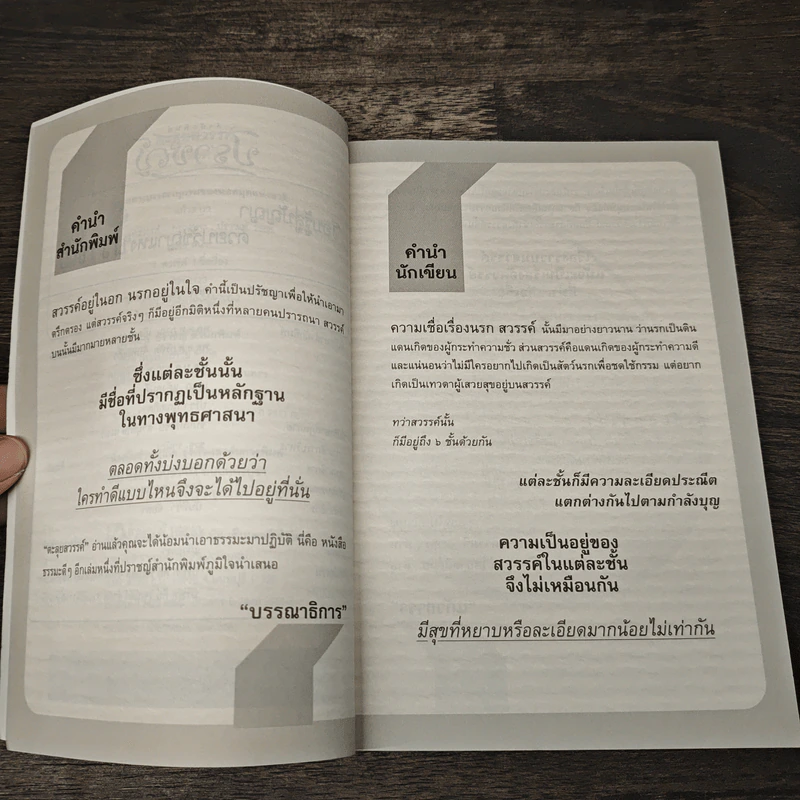 คำนำ
สำนักพิมพ์
สวรรค์อยู่ในอก นรกอยู่ในใจ คำนี้เป็นปรัชญาเพื่อให้นำเอามา
ตรึกตรอง แต่สวรรค์จริงๆ ก็มีอยู่อีกมิติหนึ่งที่หลายคนปรารถนา สวรรค์
บนนั้นมีมากมายหลายชั้น
ซึ่งแต่ละชั้นนั้น
มีชื่อที่ปรากฏเป็นหลักฐาน
ในทางพุทธศาสนา
ตลอดทั้งบ่งบอกด้วยว่า
ใครทำดีแบบไหนจึงจะได้ไปอยู่ที่นั่น
"ตะลุยสวรรค์" อ่านแล้วคุณจะได้น้อมนำเอาธรรมะมาปฏิบัติ นี่คือ หนังสือ
ธรรมะดีๆ อีกเล่มหนึ่งที่ปราชญ์สำนักพิมพ์ภูมิใจนำเสนอ
"บรรณาธิการ"
คำนำ
นักเขียน
ความเชื่อเรื่องนรก สวรรค์ นั้นมีมาอย่างยาวนาน ว่านรกเป็นดิน
แดนเกิดของผู้กระทำความชั่ว ส่วนสวรรค์คือแดนเกิดของผู้กระทำความดี
และแน่นอนว่าไม่มีใครอยากไปเกิดเป็นสัตว์นรกเพื่อชดใช้กรรม แต่อยาก
เกิดเป็นเทวดาผู้เสวยสุขอยู่บนสวรรค์
ทว่าสวรรค์นั้น
ก็มีอยู่ถึง ๖ ชั้นด้วยกัน
แต่ละชั้นก็มีความละเอียดประณีต
แตกต่างกันไปตามกำลังบุญ
ความเป็นอยู่ของ
สวรรค์ในแต่ละชั้น
จึงไม่เหมือนกัน
มีสุขที่หยาบหรือละเอียดมากน้อยไม่เท่ากัน